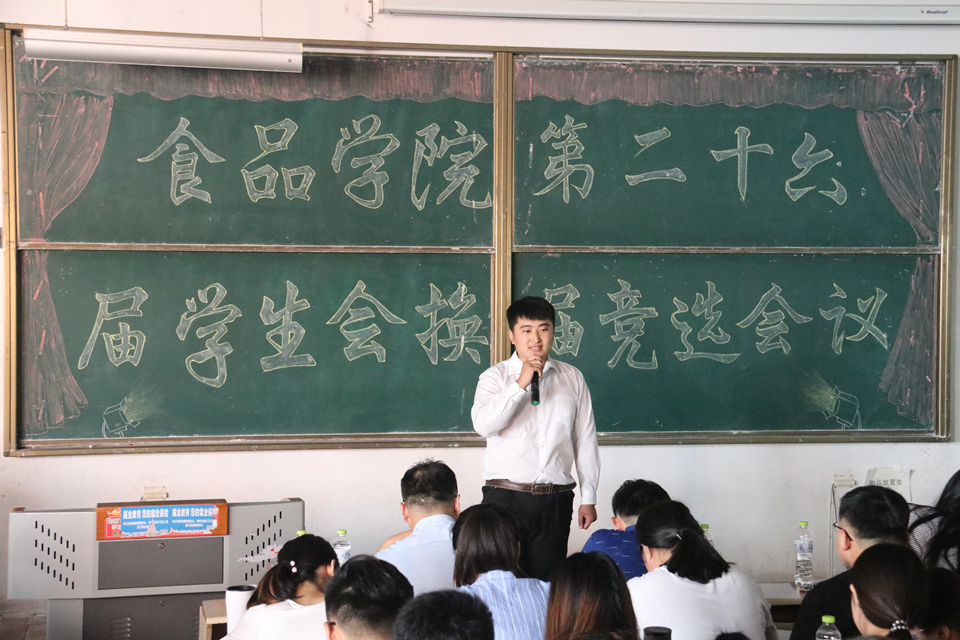 Redleaf
食品学院第二十六
届学生会换届竞选会议